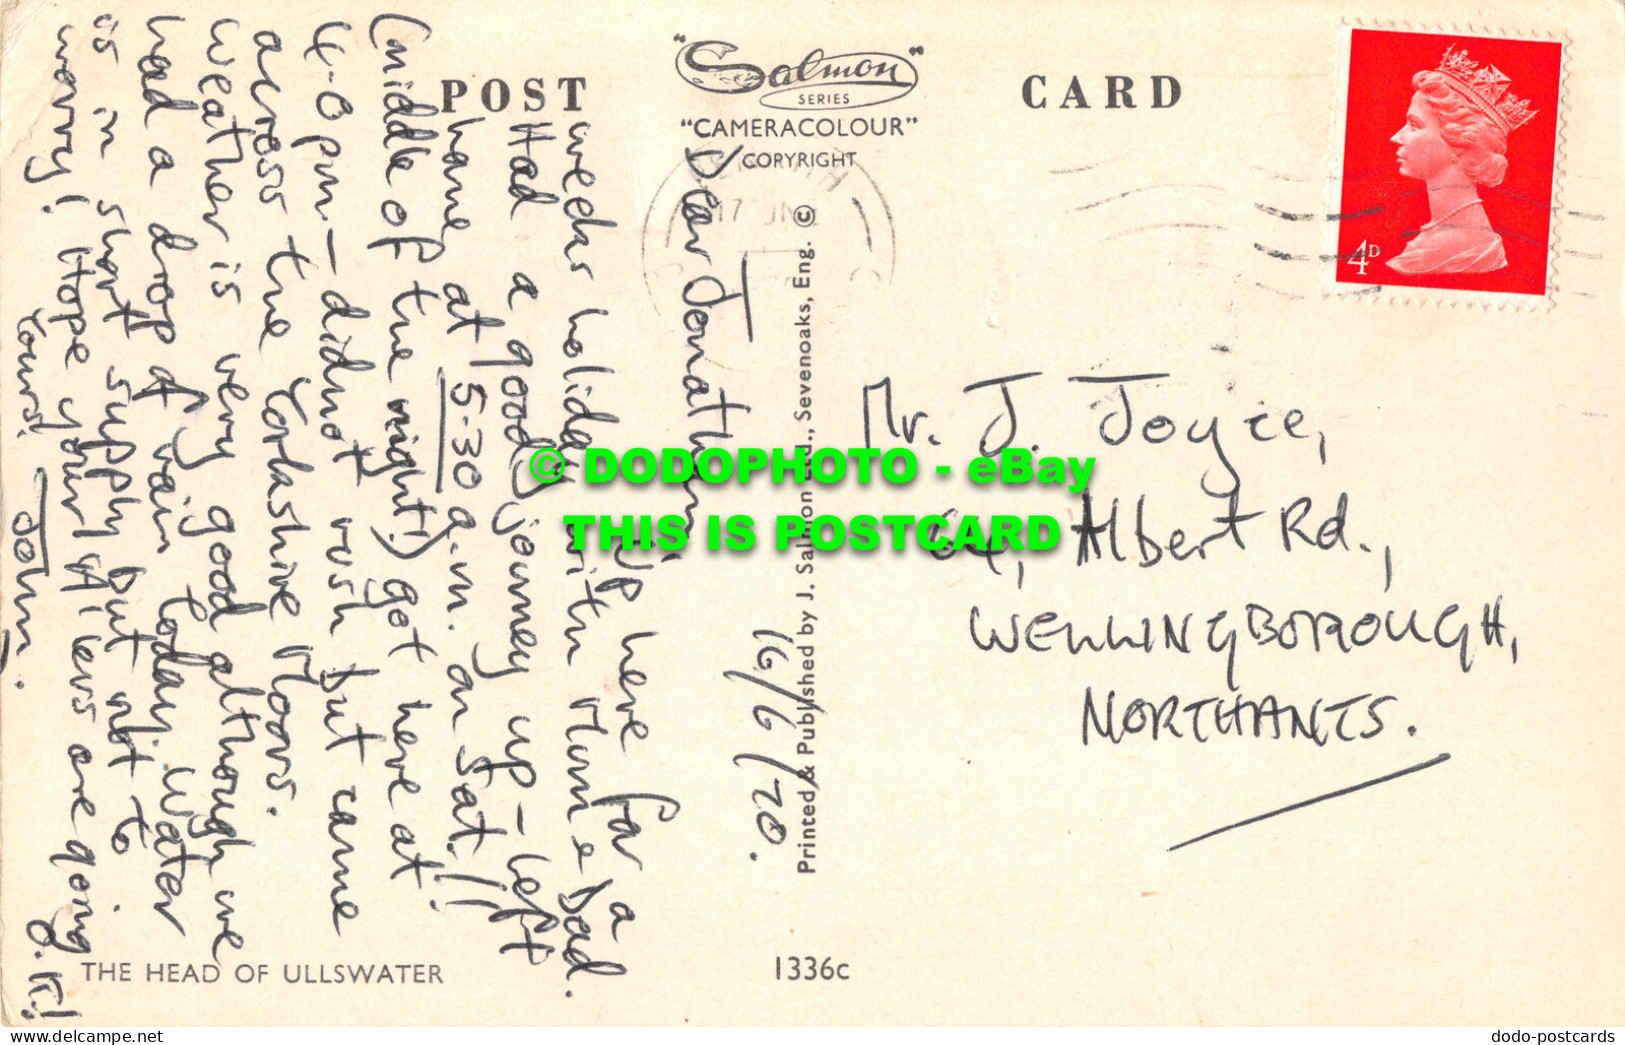 POST CARD
"Salmon"
SERIES
"CAMERACOLOUR"
COPYRIGHT
4D
Dear Jonathan,
16/6/70.
Up here for a
weeks holiday with Mum & Dad.
Had a good journey up - left
home at 5-30 a.m. on Sat.!!
(middle of the night!) got here at
4-0 pm - didnot rush but came
across the Yorkshire Moors.
Weather is very good although we
had a drop of rain today. Water
is in short supply but not to
worry! Hope your 'A' levers are going
O.K.!
Yours.
John.
Mr. J. Joyce,
Albert Rd.,
WELLINGBOROUGH,
NORTHANTS.
Printed & Published by J. Salmon Ltd., Sevenoaks, Eng. ©
THE HEAD OF ULLSWATER
1336c
© DODOPHOTO - eBay
THIS IS POSTCARD
delcampe.net
dodo-postcards